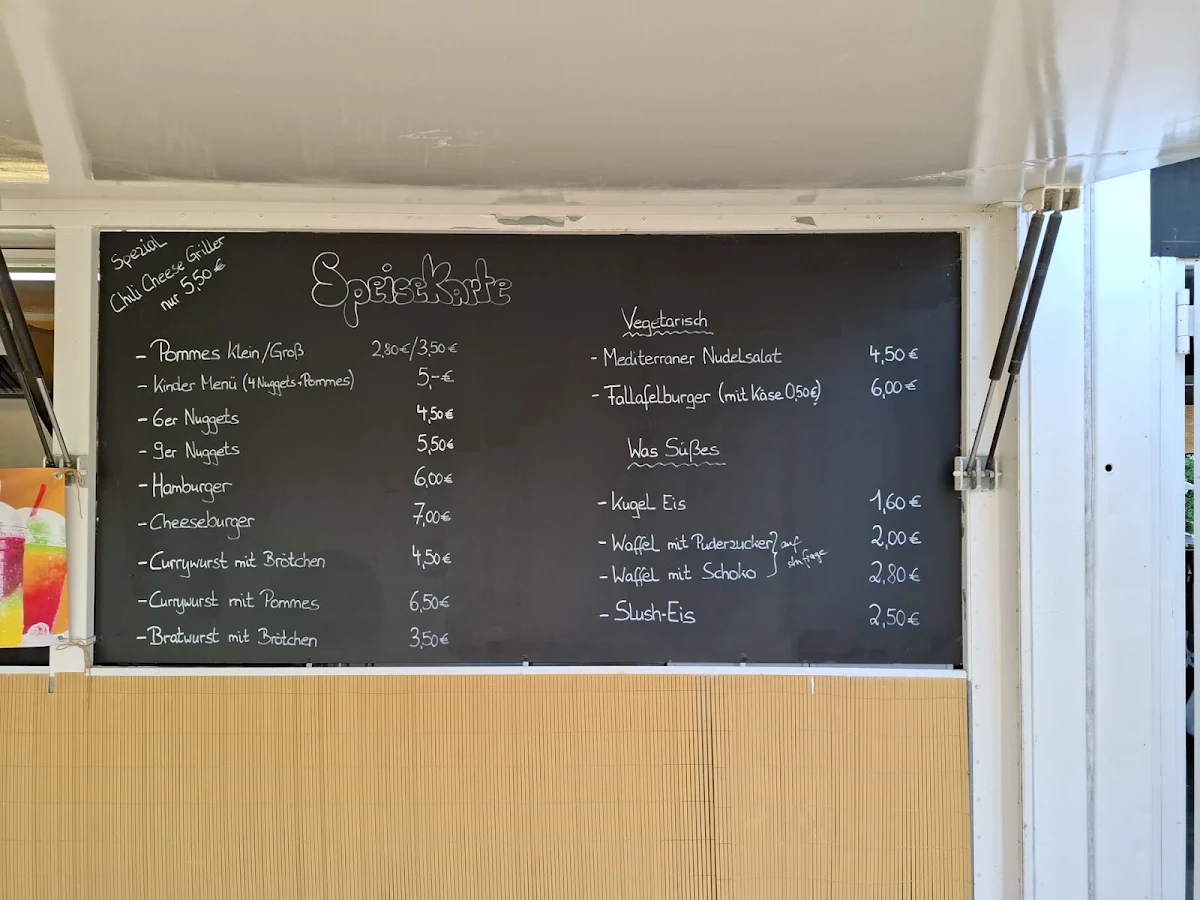 Spezial
Chili Cheese Griller
nur 5,50€
Speisekarte
- Pommes Klein/Groß 2,80€/3,50€
- Kinder Menü (4 Nuggets+Pommes) 5,-€
- 6er Nuggets 4,50€
- 9er Nuggets 5,50€
- Hamburger 6,00€
- Cheeseburger 7,00€
- Currywurst mit Brötchen 4,50€
- Currywurst mit Pommes 6,50€
- Bratwurst mit Brötchen 3,50€
Vegetarisch
- Mediterraner Nudelsalat 4,50€
- Fallafelburger (mit Käse 0,50€) 6,00€
Was Süßes
- Kugel Eis 1,60€
- Waffel mit Puderzucker 2,00€
- Waffel mit Schoko 2,80€
auf
Anfrage
- Slush-Eis 2,50€